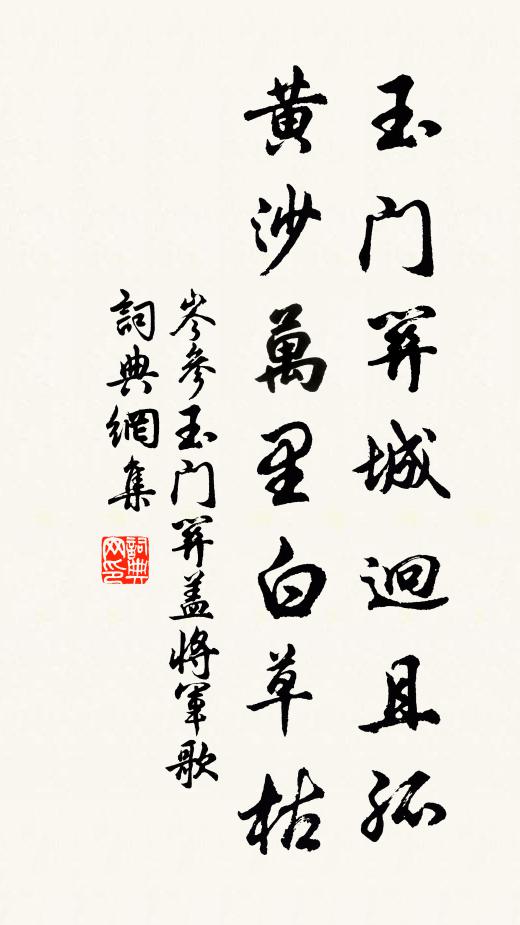 玉门關城迥且孤
黄沙萬里白草枯
岑參玉门關盖將軍歌
詞典網集
詞典
网印